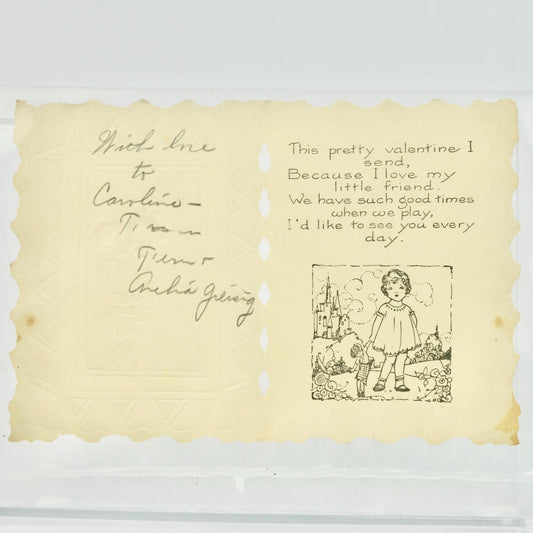 With love
to
Caroline –
This pretty valentine I
send,
Because I love my
little friend.
We have such good times
when we play,
I'd like to see you every
day.